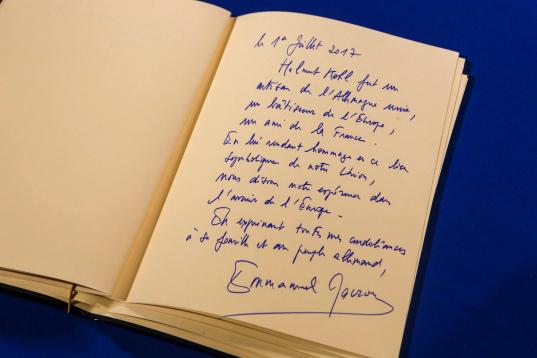 le 1er Juillet 2017
Helmut Kohl fut un
artisan de l'Allemagne unie,
un bâtisseur de l'Europe,
un ami de la France.
En lui rendant hommage en ce lieu
symbolique de notre Union,
nous disons notre espérance dans
l'avenir de l'Europe.
En exprimant toutes mes condoléances
à sa famille et au peuple allemand,
Emmanuel Macron